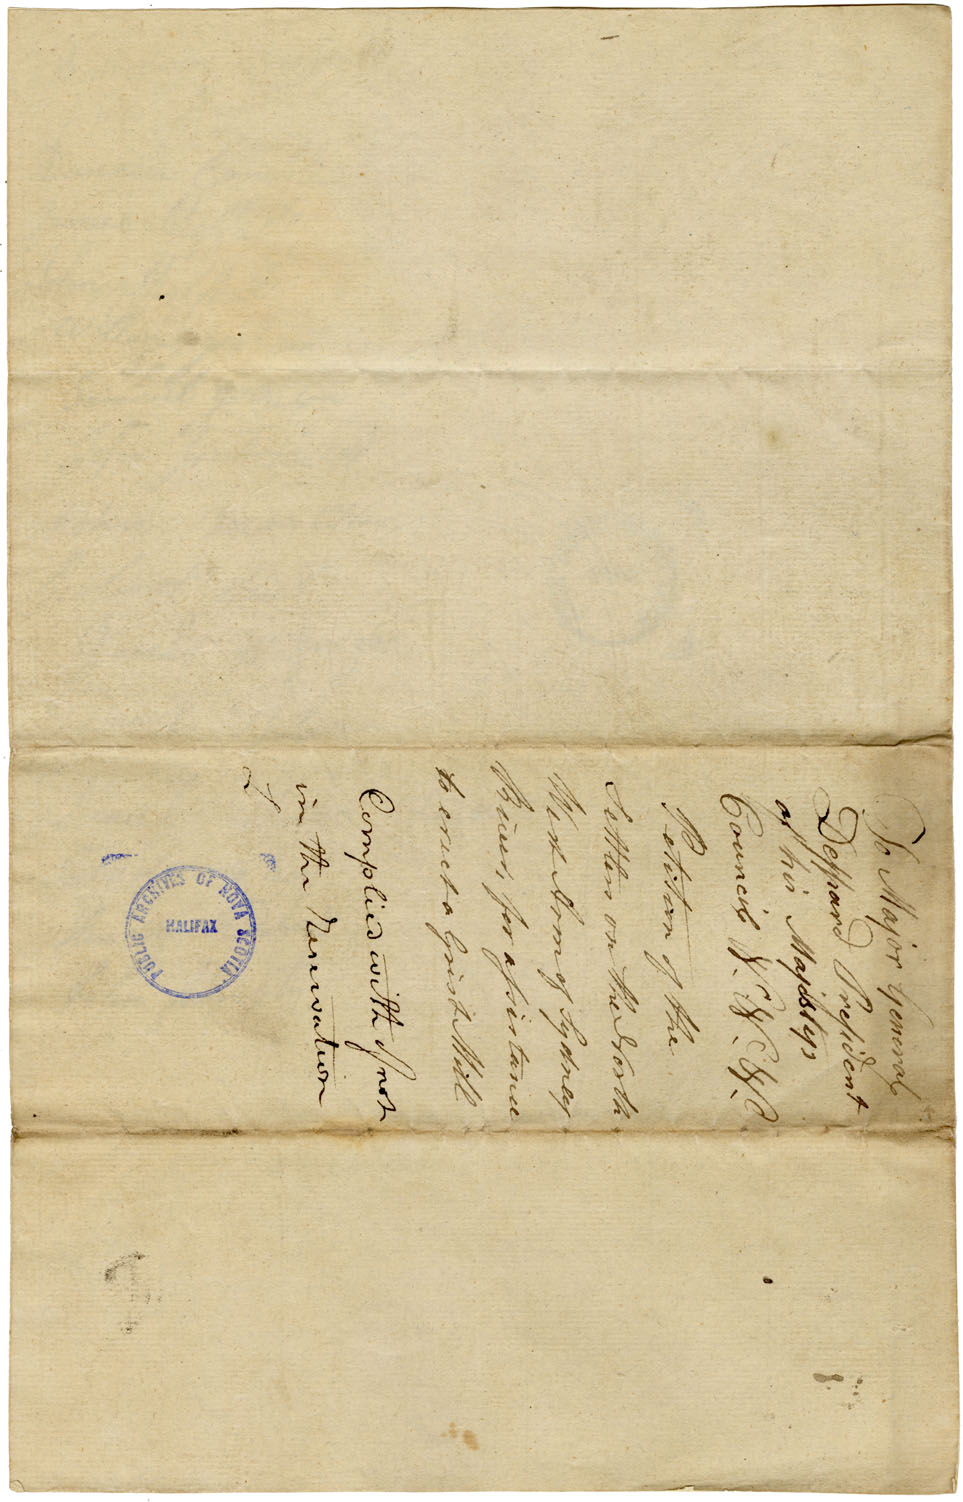 To Major General
Desppard President
of his Majestys
Council &. &. &.
Petition of the
Settlers on the North
West Arm of Sydney
River, for assistance
to erect a Grist Mill
Complied with if not
in the Reservation
PUBLIC ARCHIVES OF NOVA SCOTIA
HALIFAX